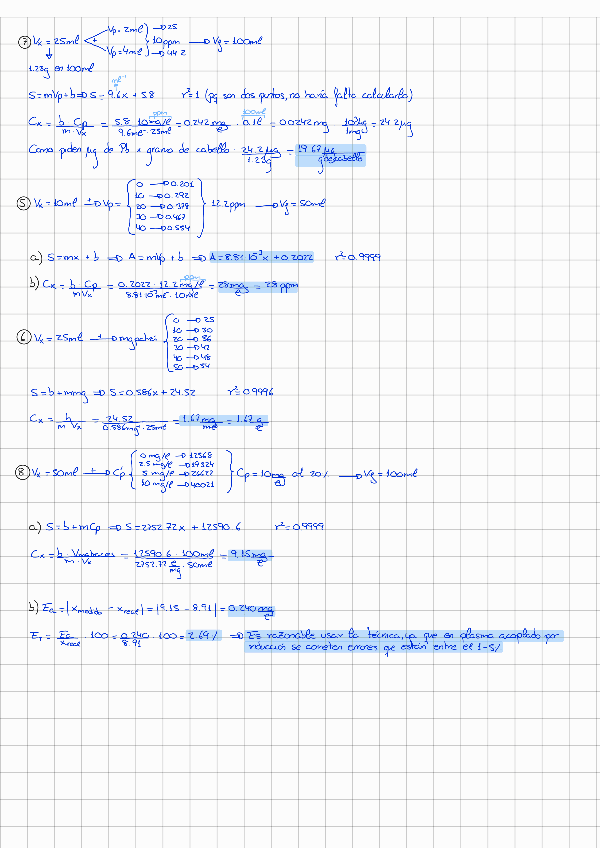 ⑦ Vx = 25ml + Vp = 2ml → 25
Vp = 4ml → 44.2
10ppm → Vg = 100ml
1.23g en 100ml
ml⁻¹
S = mVp + b ⇒ S = 9.6x + 5.8 r² = 1 (pq son dos puntos, no haría falta calcularlo)
Cx = b/m · Cp/Vx = 5.8 · 10mg/l / 9.6ml⁻¹ · 25ml = 0.242 mg/l · 0.1l = 0.0242mg · 10³µg/1mg = 24.2µg
ppm
100ml
Como piden µg de Pb x gramo de cabello: 24.2µg/1.23g = 19.67 µg/g de cabello
⑤ Vx = 10ml + → Vp = 0 → 0.201
10 → 0.292
20 → 0.378
30 → 0.467
40 → 0.554
12.2ppm → Vg = 50ml
a) S = mx + b ⇒ A = mVp + b ⇒ A = 8.81·10⁻³x + 0.2022 r² = 0.9999
ppm
b) Cx = b Cp / m Vx = 0.2022 · 12.2mg/l / 8.81·10⁻³ml⁻¹ · 10ml = 28mg/l = 28ppm
⑥ Vx = 25ml + → mg patrón 0 → 25
10 → 30
20 → 36
30 → 42
40 → 48
50 → 54
S = b + m mg ⇒ S = 0.586x + 24.52 r² = 0.9996
Cx = b / m · Vx = 24.52 / 0.586mg⁻¹ · 25ml = 1.67 mg/ml = 1.67 g/l
⑧ Vx = 50ml + → Cp 0mg/l → 12568
2.5mg/l → 19324
5mg/l → 26622
10mg/l → 40021
Cp = 10mg/l al 20% → Vg = 100ml
a) S = b + mCp ⇒ S = 2752.72x + 12590.6 r² = 0.9999
Cx = b · Vmatraces / m · Vx = 12590.6 · 100ml / 2752.72 l/mg · 50ml = 9.15mg/l
b) Ea = |xmedido − xreal| = |9.15 − 8.91| = 0.240mg/l
Er = Ea/xreal · 100 = 0.240/8.91 · 100 = 2.69% ⇒ Es razonable usar la técnica, ya que en plasma acoplado por
inducción se cometen errores que están entre el 1-5%